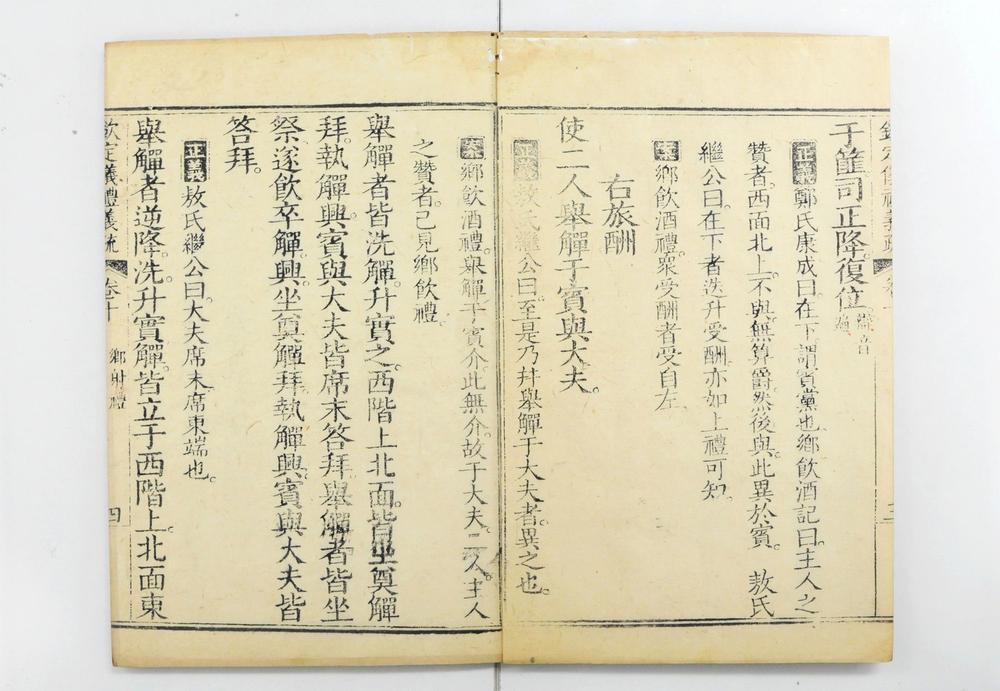 欽定儀禮義疏 卷十 三
于篚司正降復位
篚音
正義鄭氏康成曰在下謂賓黨也鄉飲酒記曰主人之
贊者西面北上不與無算爵然後與此異於賓。敖氏
繼公曰在下者迭升受酬亦如上禮可知
案鄉飲酒禮衆受酬者受自左
右旅酬
使二人舉觶于賓與大夫。
正義敖氏繼公曰至是乃并舉觶于大夫者異之也。
案鄉飲酒禮舉觶于賓介此無介故于大夫。二人主人
之贊者已見鄉飲禮
舉觶者皆洗觶升實之西階上北面皆坐奠觶
拜執觶興賓與大夫皆席末答拜舉觶者皆坐
祭遂飲卒觶興坐奠觶拜執觶興賓與大夫皆
答拜。
正義敖氏繼公曰大夫席末席東端也。
舉觶者逆降洗升實觶皆立于西階上北面東
欽定儀禮義疏 卷十 鄉射禮 四